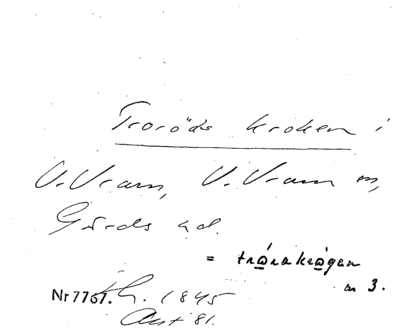 Troröds kroken i
V. Vram, V. Vram sn,
Gärds hd.
= trǫ́rakrǫ̀gan
m 3.
Nr 7767. Lh. 1845
Akt 81.